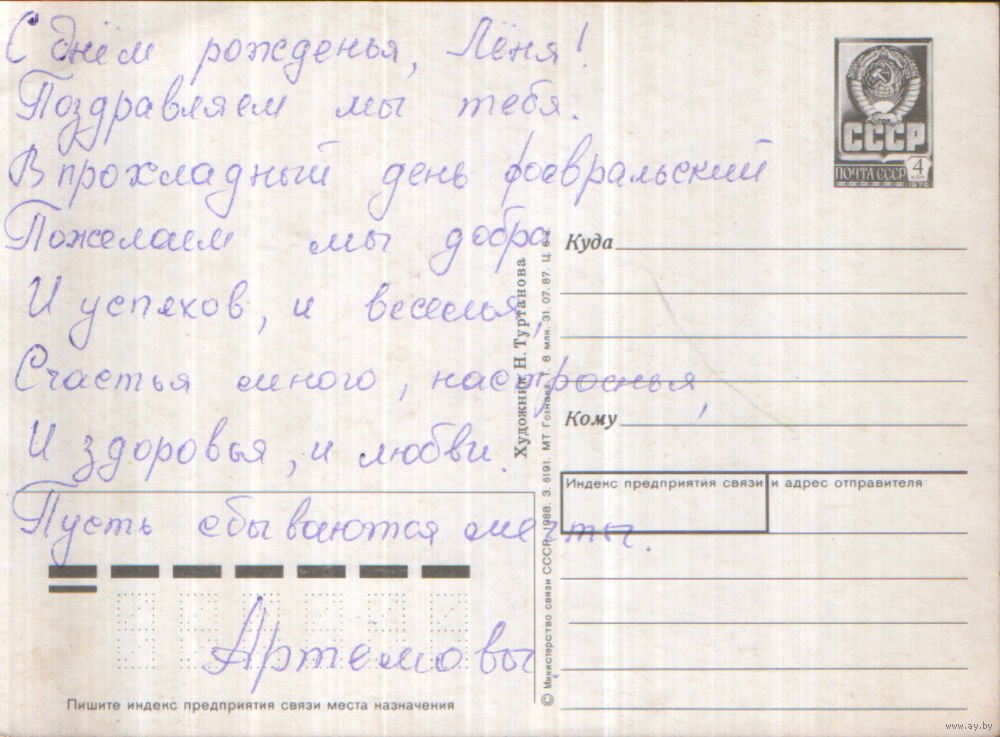 С днём рожденья, Лёня!
Поздравляем мы тебя.
В прохладный день февральский
Пожелаем мы добра
И успехов, и веселья,
Счастья много, настроенья,
И здоровья, и любви.
Пусть сбываются мечты.
Артёмовы.
Пишите индекс предприятия связи места назначения
Художник Н. Туртанова
© Министерство связи СССР. 1988. З. 6191. МТ Гознака. Т. 8 млн. 31.07.87. Ц.
СССР
ПОЧТА СССР
4
КОП
1976
Куда
Кому
Индекс предприятия связи и адрес отправителя
www.ay.by